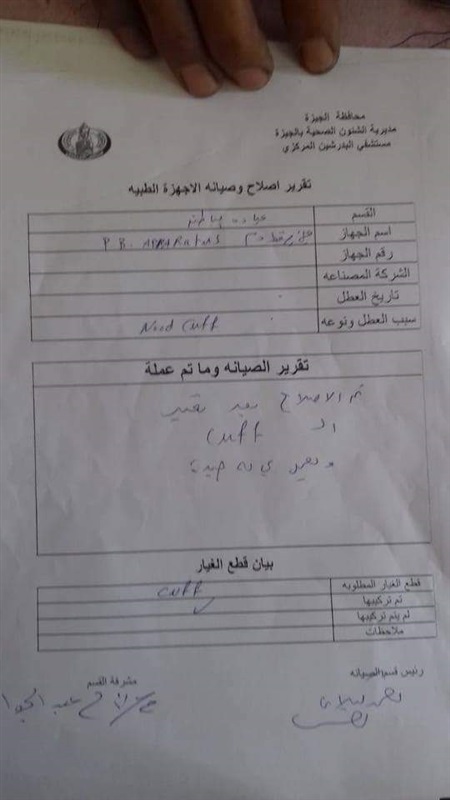 محافظة الجيزة
مديرية الشئون الصحية بالجيزة
مستشفى البدرشين المركزي
تقرير اصلاح وصيانه الاجهزة الطبيه
القسم عيادة
اسم الجهاز جهاز ضغط دم P B. APPARATUS
رقم الجهاز
الشركة المصناعه
تاريخ العطل
سبب العطل ونوعه Nood Cuff
تقرير الصيانه وما تم عملة
تم الاصلاح بعد تغيير
ال Cuff
ويعمل بحالة جيدة
بيان قطع الغيار
قطع الغيار المطلوبه Cuff
تم تركيبها ✓
لم يتم تركيبها
ملاحظات
رئيس قسم الصيانه
مشرفة القسم
عبد الجواد